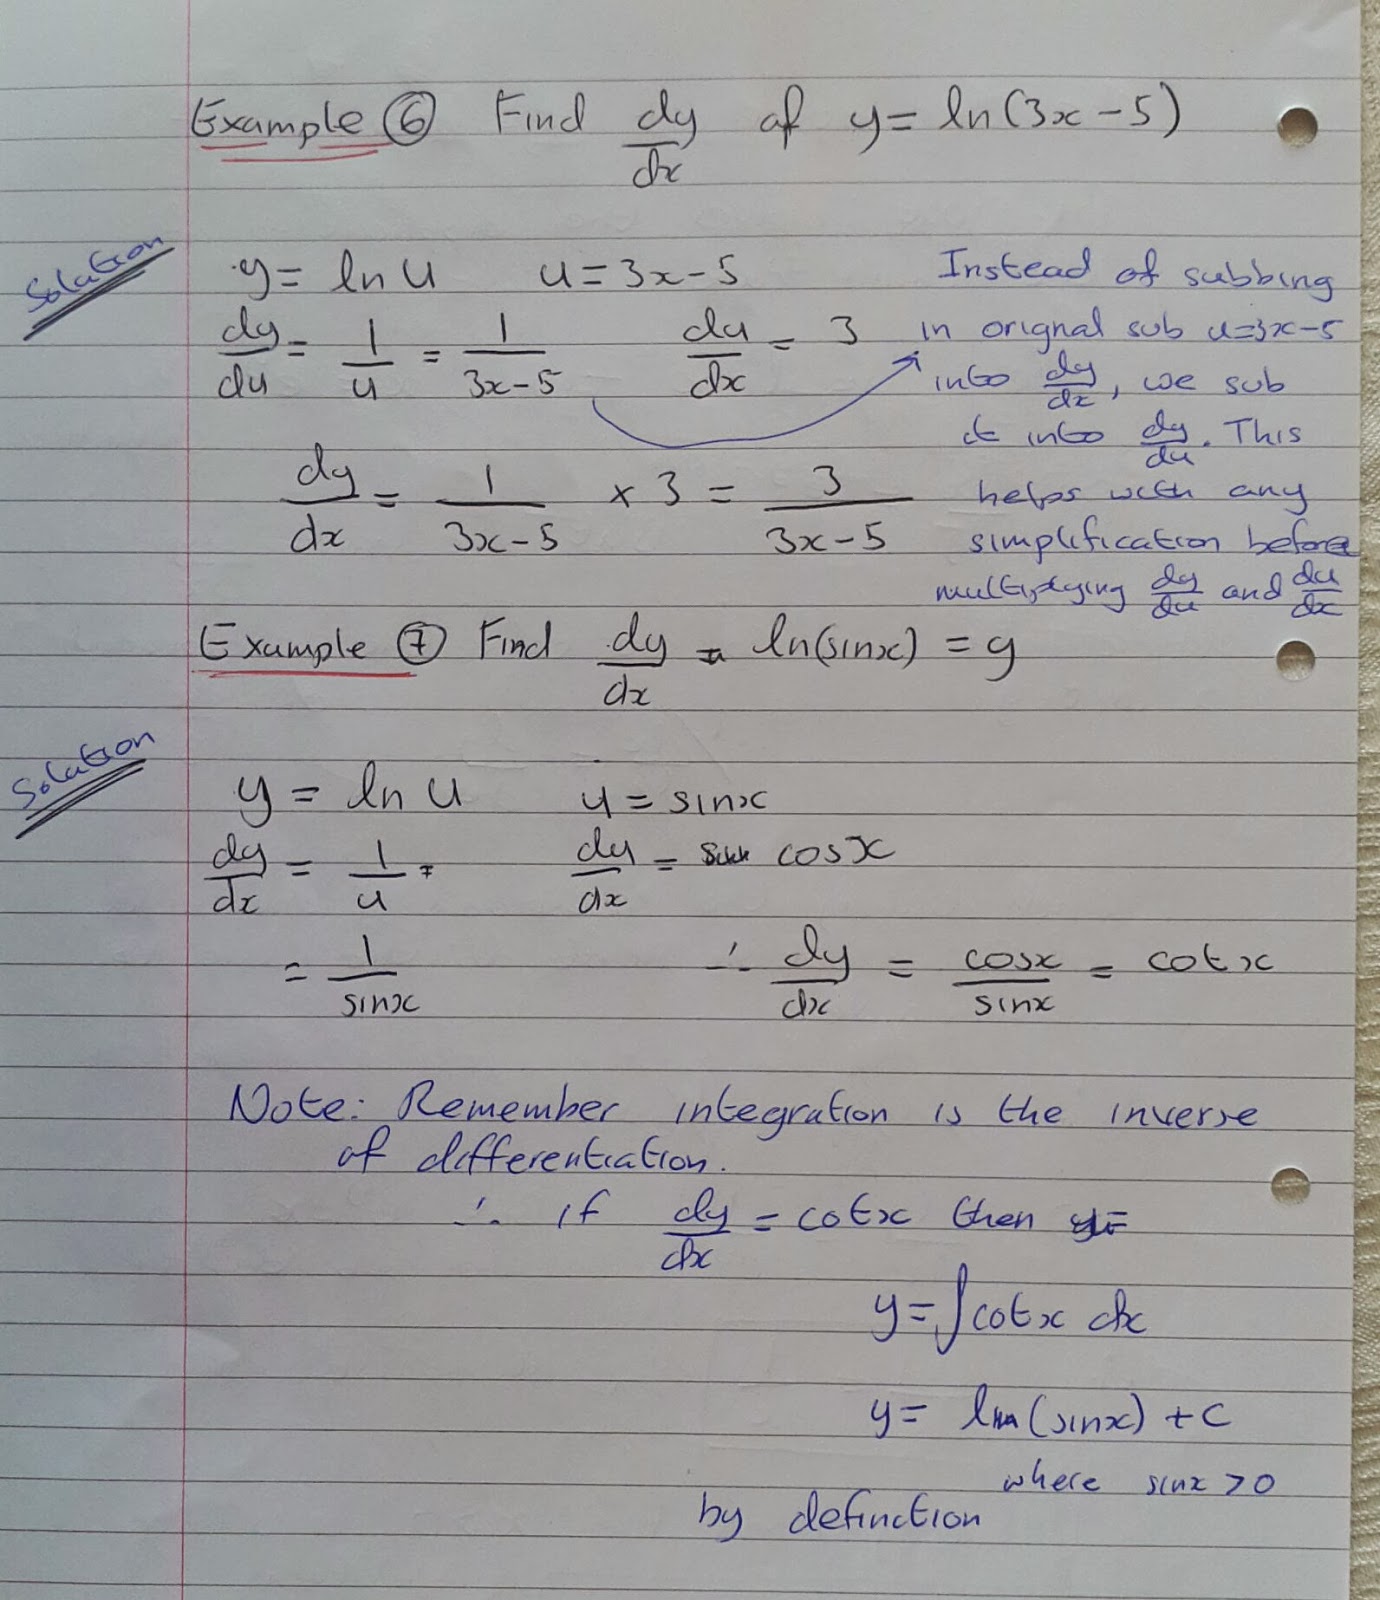 Example ⑥ Find dy/dx of y = ln(3x - 5)
Solution
y = ln u u = 3x - 5
dy/du = 1/u = 1/3x-5 du/dx = 3
dy/dx = 1/3x-5 × 3 = 3/3x-5
Instead of subbing
in orignal sub u=3x-5
into dy/dx, we sub
it into dy/du. This
helps with any
simplification before
multiplying dy/du and du/dx
Example ⑦ Find dy/dx ln(sinx) = y
Solution
y = ln u u = sinx
dy/dx = 1/u = du/dx = cosx
= 1/sinx ∴ dy/dx = cosx/sinx = cotx
Note: Remember integration is the inverse
of differentiation.
∴ if dy/dx = cotx then y=
y = ∫cotx dx
y = ln(sinx) + c
where sinx > 0
by definction